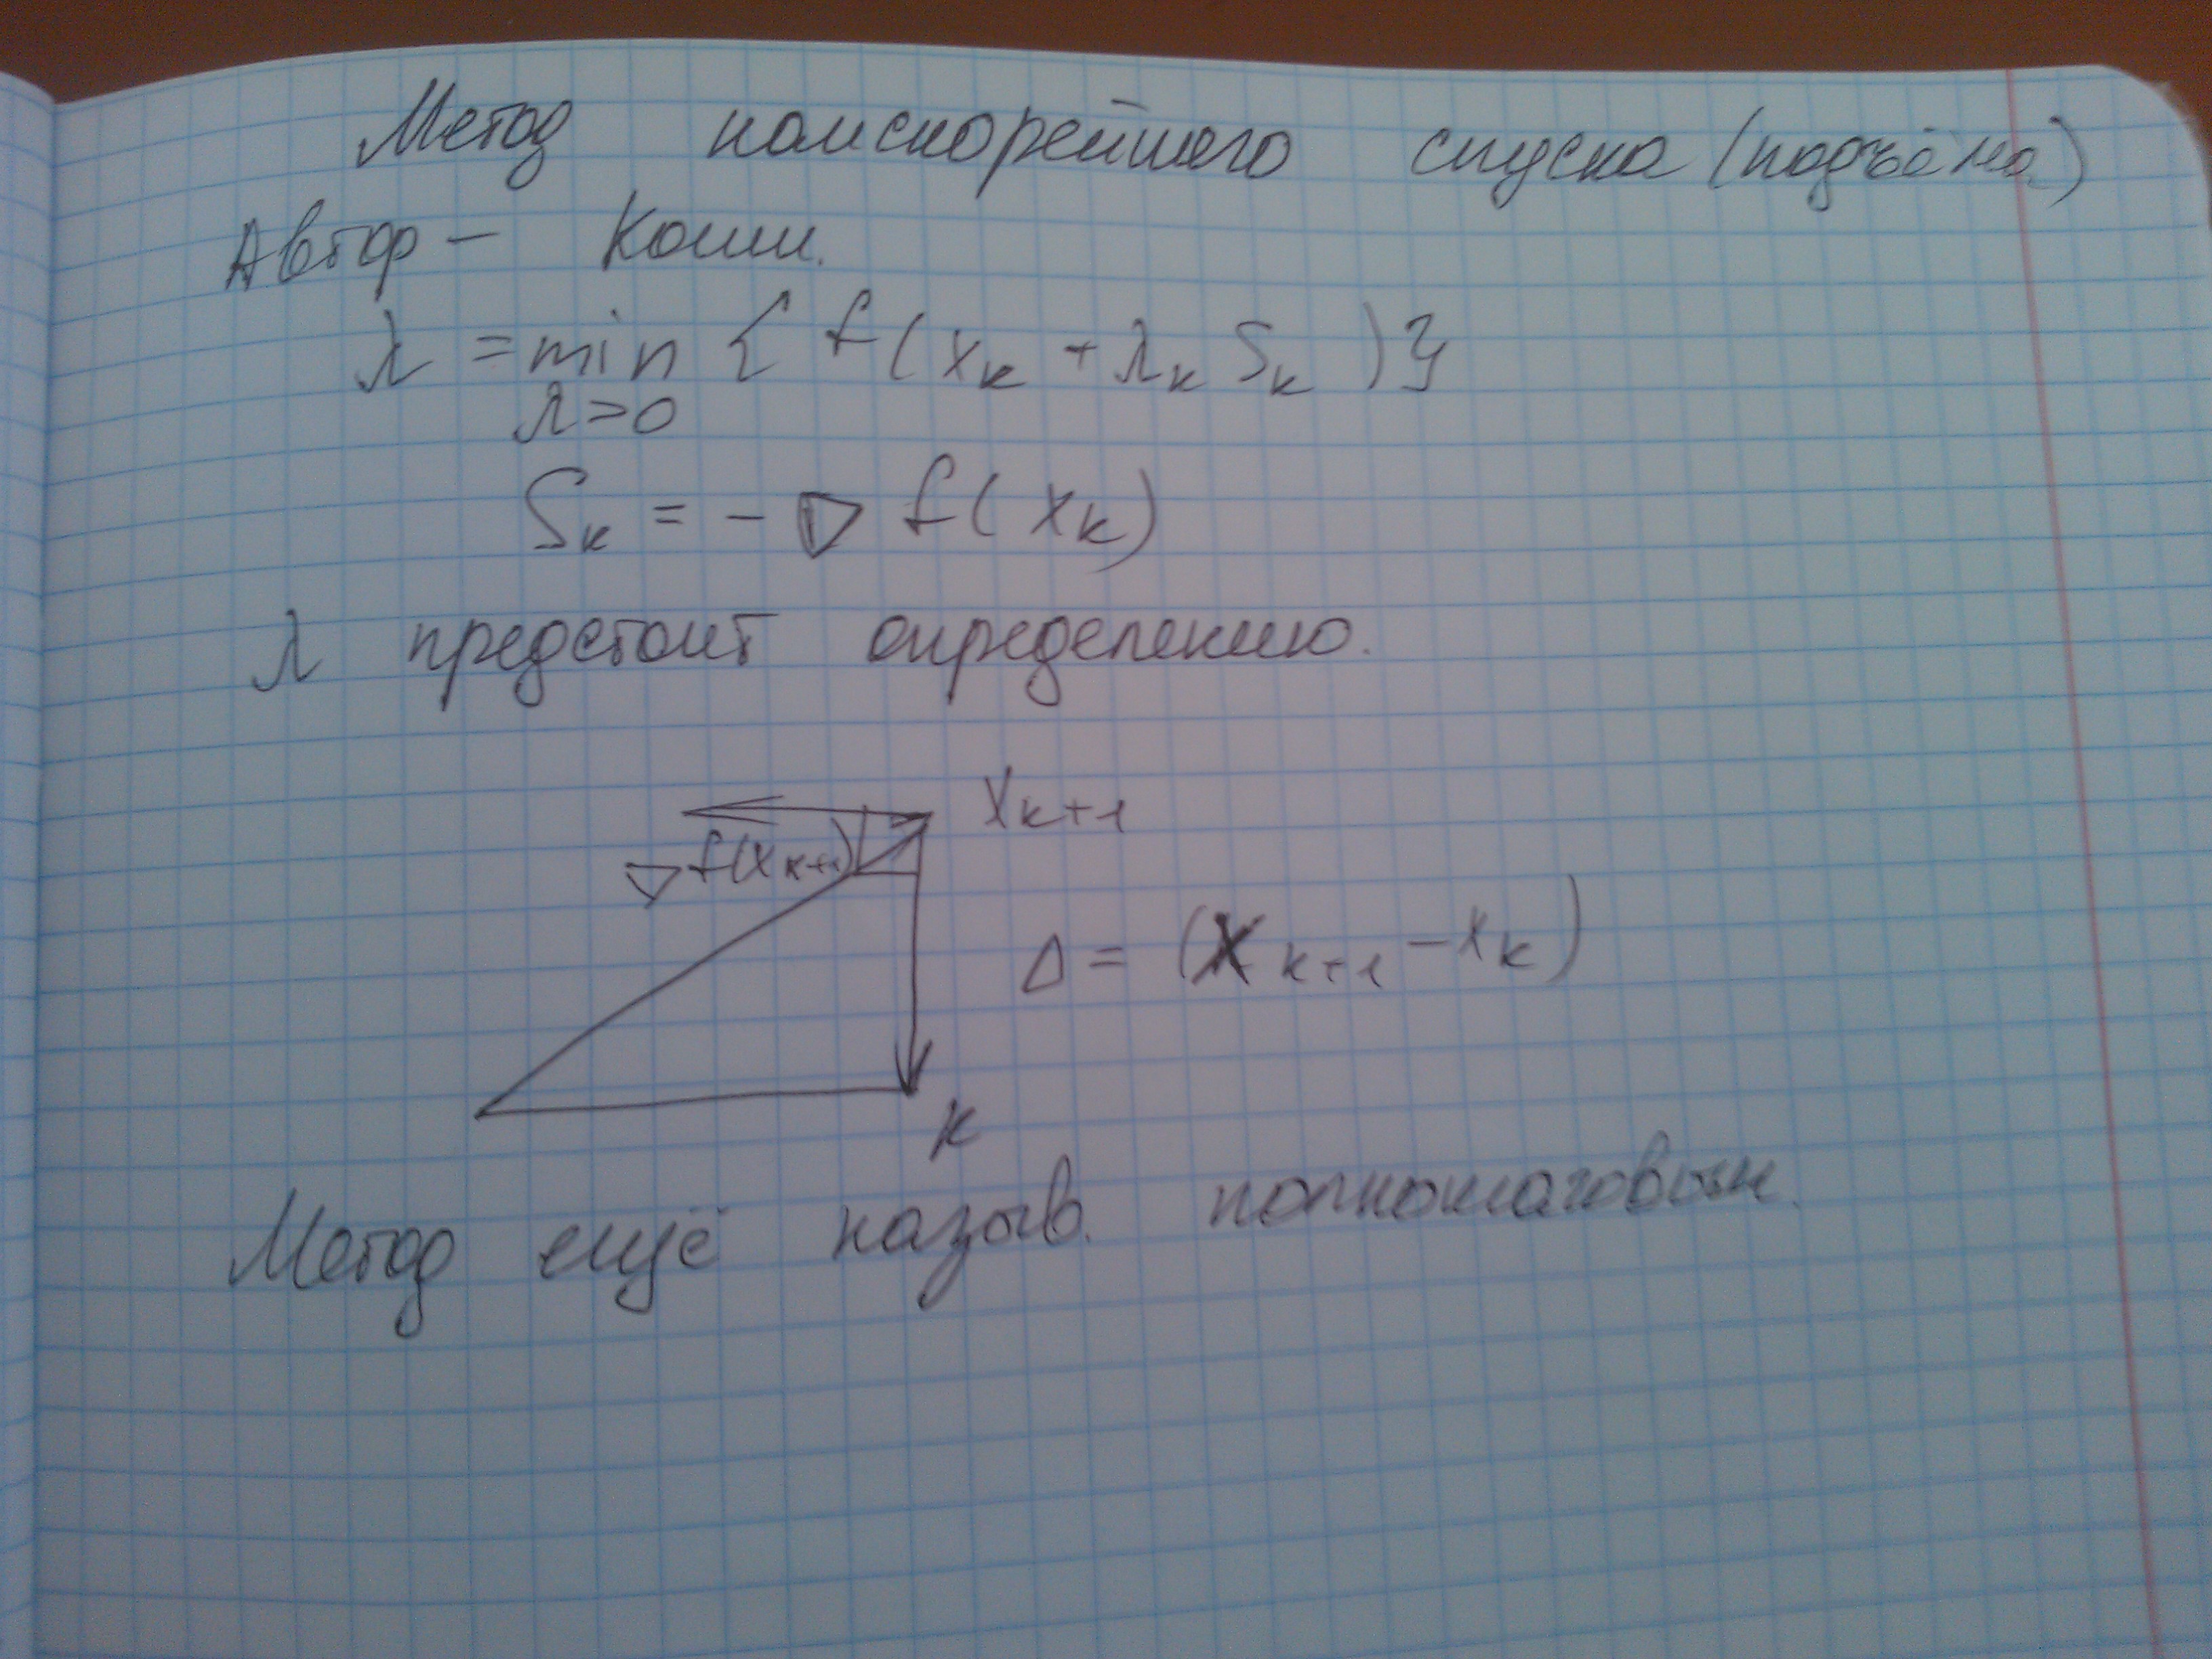 Метод наискорейшего спуска (подъёма)
Автор – Коши.
λ = min { f(x_k + λ_k S_k) }
λ>0
S_k = -∇ f(x_k)
λ предстоит определению.
x_{k+1}
∇f(x_{k+1})
Δ = (x_{k+1} - x_k)
к
Метод ещё назыв. полношаговым.